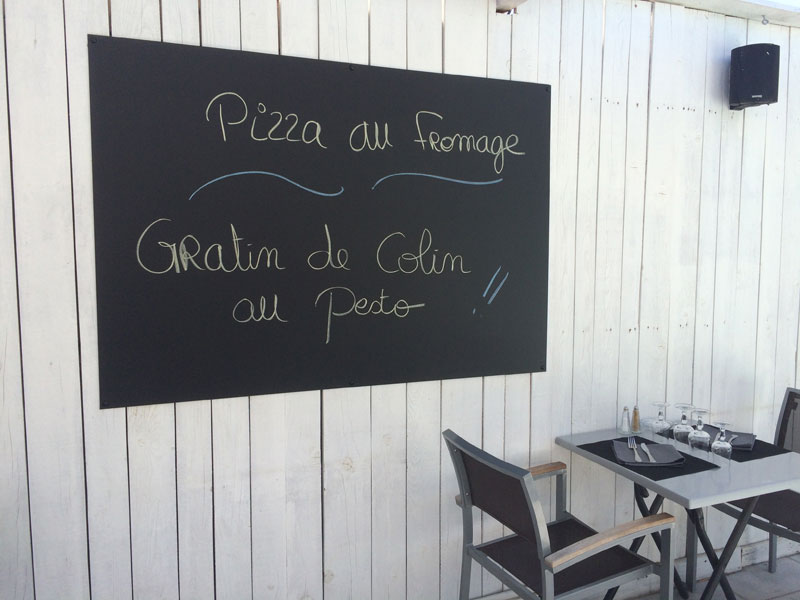 Pizza au fromage
Gratin de Colin
au pesto !!